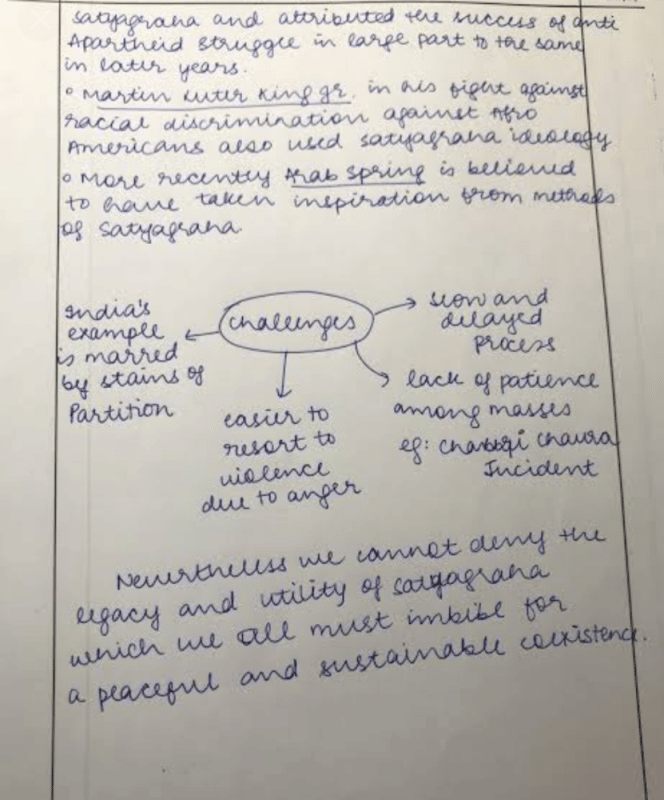 satyagraha and attributed the success of anti
Apartheid struggle in large part to the same
in later years.
• Martin Luter King Jr. in his fight against
racial discrimination against Afro
Americans also used satyagraha ideology
• More recently Arab Spring is believed
to have taken inspiration from methods
of Satyagraha.
challenges
India's
example
is marred
by stains of
Partition
easier to
resort to
violence
due to anger
slow and
delayed
process
lack of patience
among masses
eg: Chaura
Incident
Nevertheless we cannot deny the
legacy and utility of satyagraha
which we all must imbibe for
a peaceful and sustainable coexistence.